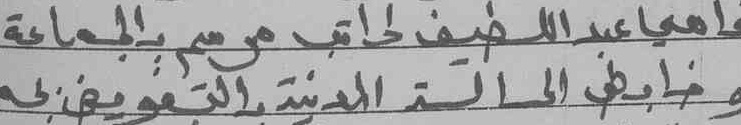 اهيا عبد اللطيف كاتب مرسم بالجماعة
و ضابط الحالة المدنية بالتفويض له